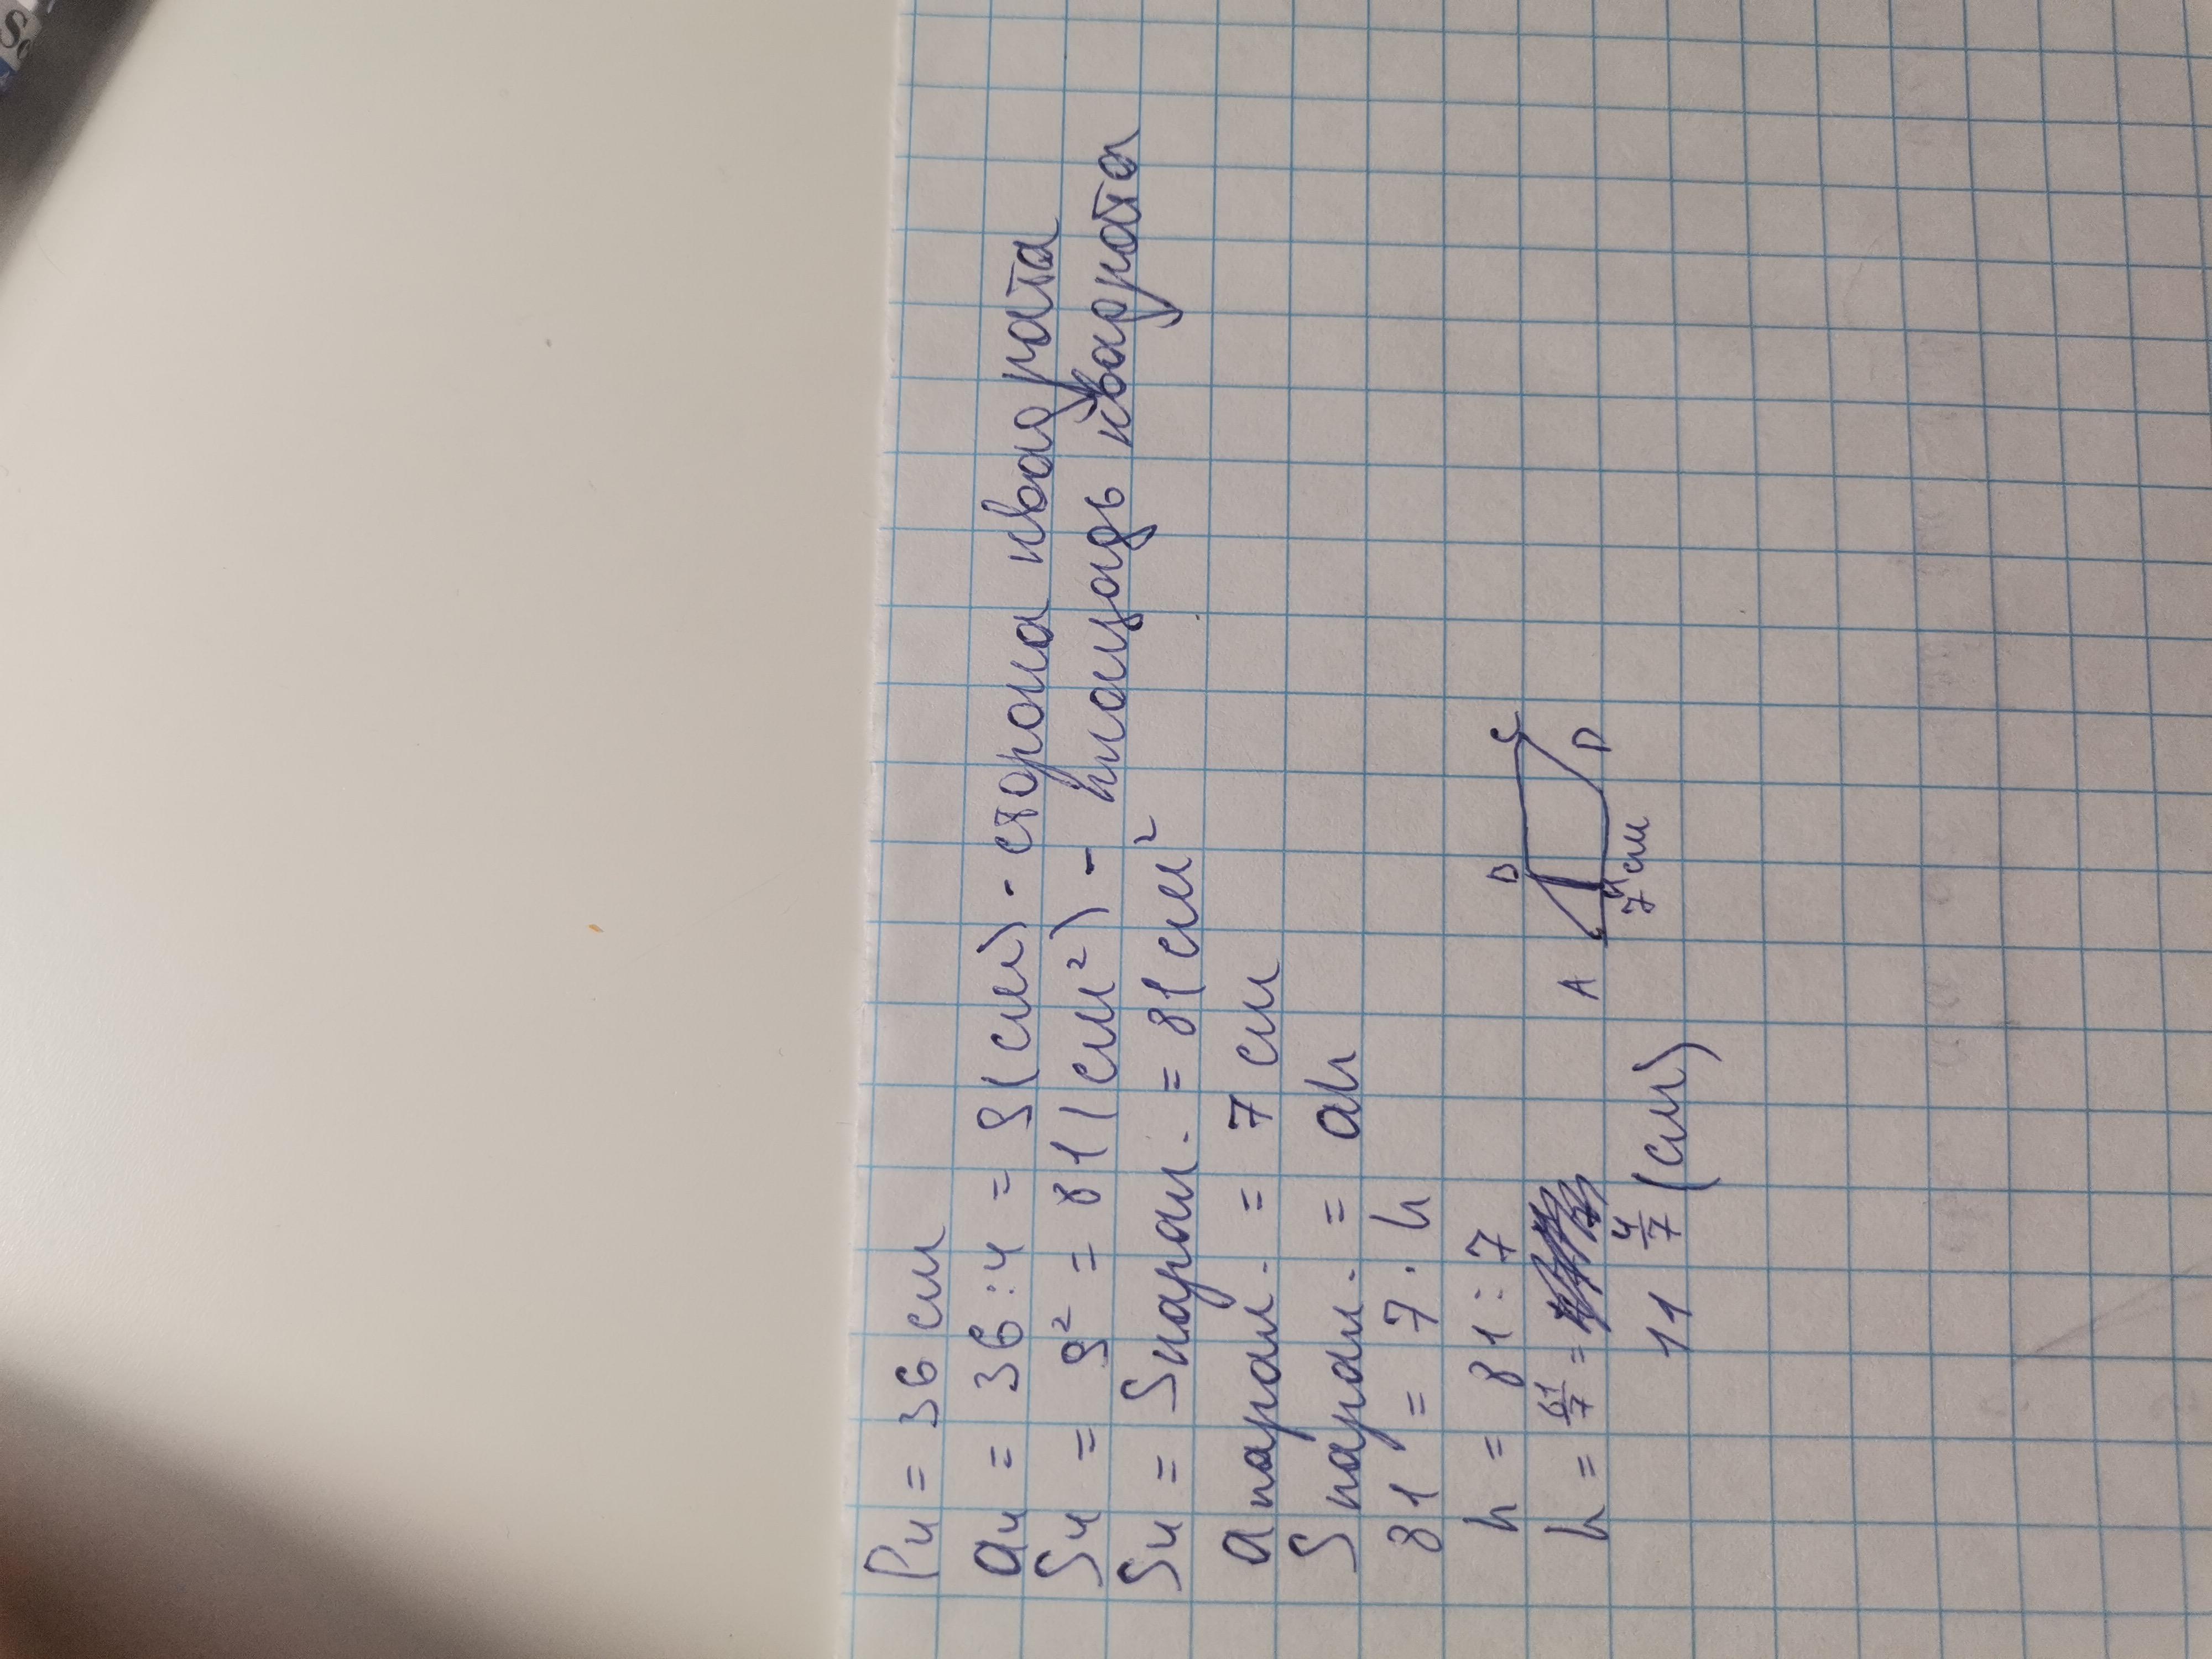 Pч = 36 см
aч = 36 : 4 = 9 (см) - сторона квадрата
Sч = 9² = 81 (см²) - площадь квадрата
Sч = Sпарал. = 81 см²
a парал. = 7 см
Sпарал. = ah
81 = 7 · h
h = 81 : 7
h = 81/7 =
11 4/7 (см)
B C
A D
7 см